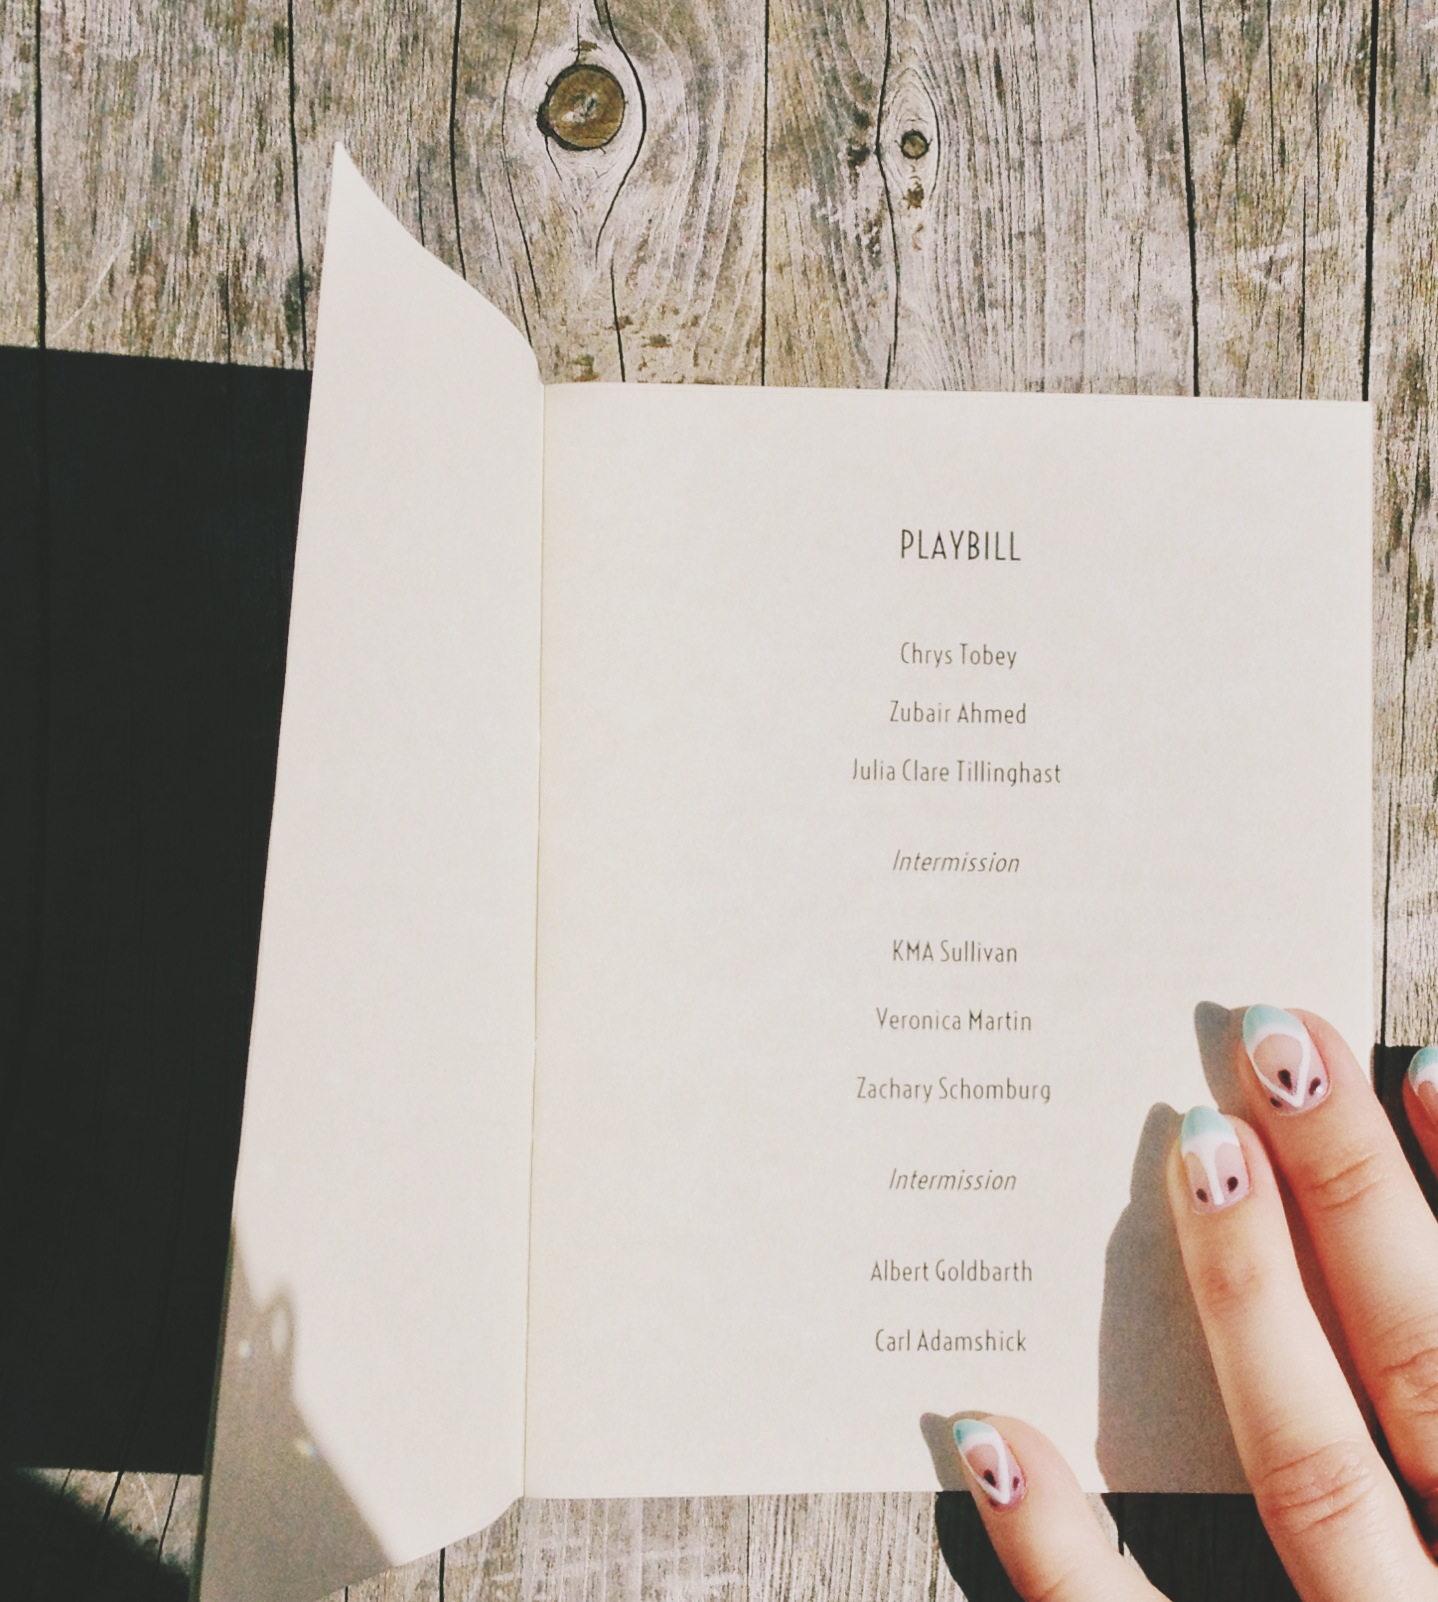 PLAYBILL
Chrys Tobey
Zubair Ahmed
Julia Clare Tillinghast
Intermission
KMA Sullivan
Veronica Martin
Zachary Schomburg
Intermission
Albert Goldbarth
Carl Adamshick